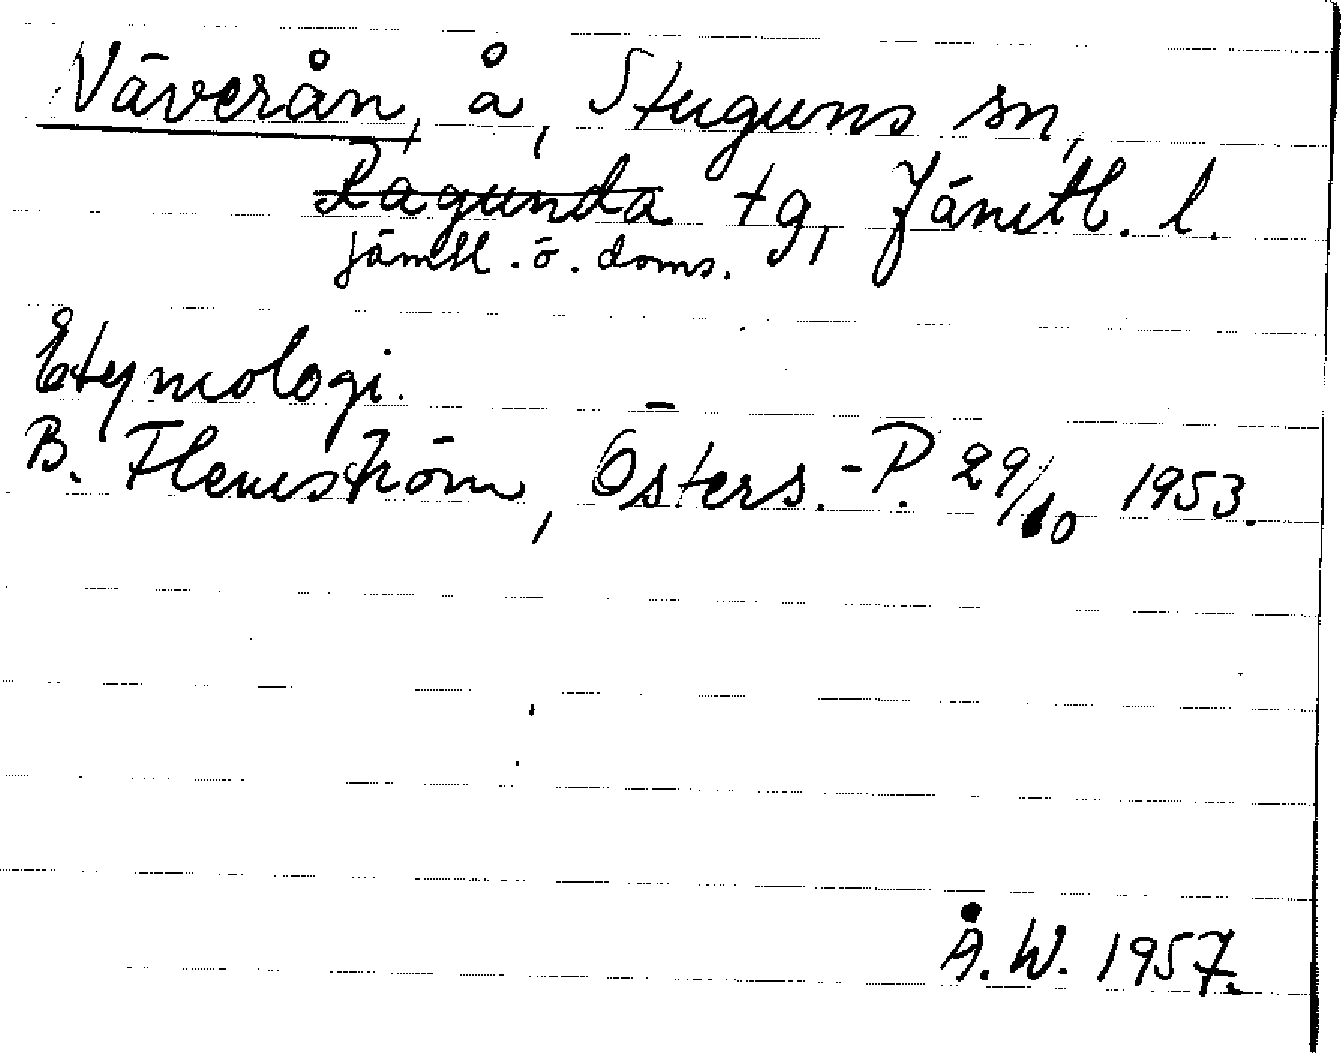 Väverån, å, Stuguns sn,
Ragunda tg, Jämtl. l.
Jämtl. ö. doms.
Etymologi.
B. Flemström, Östers.-P. 29/10 1953.
Å. W. 1957.